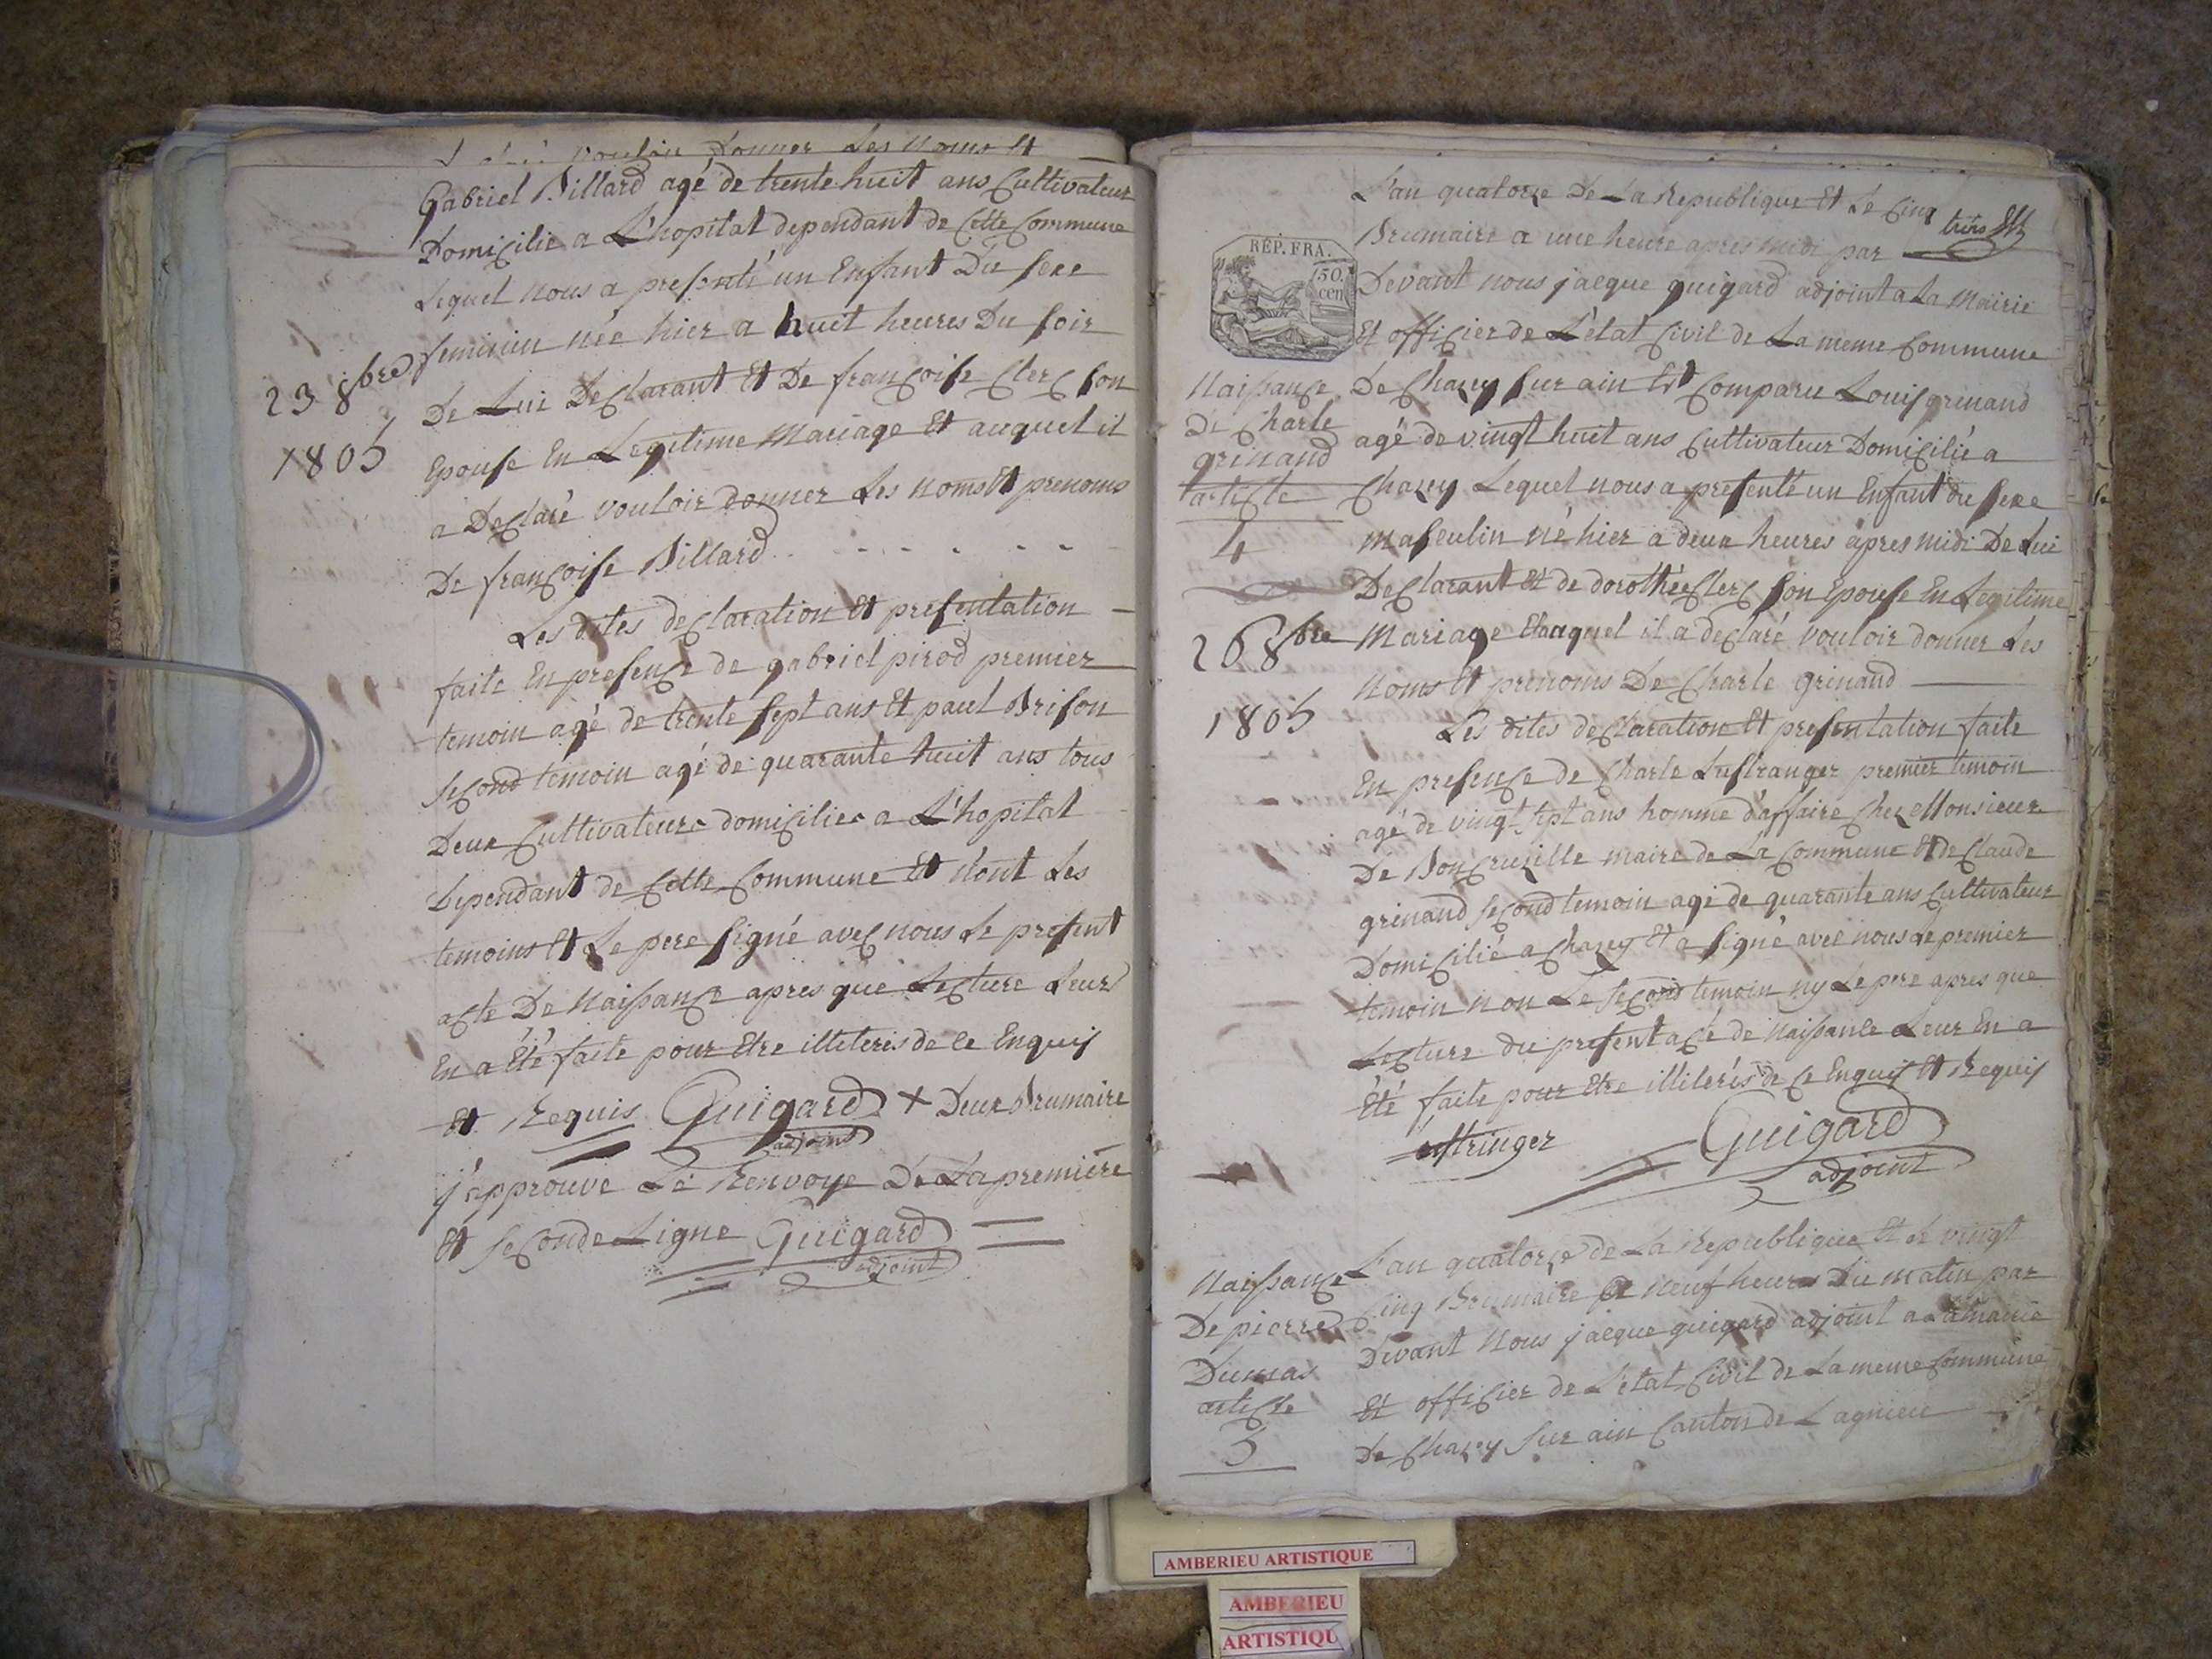 vouloir Donner Les Noms Et
Gabriel Billard agé de trente huit ans Cultivateur
Domicilié a L'hopital dependant de Cette Commune
Lequel nous a presenté un Enfant Du sexe
feminin née hier a huit heures Du soir
De Lui Declarant Et De françoise Clerc son
Epouse En Legitime Mariage Et auquel il
a Declaré vouloir donner Les noms Et prenoms
De françoise Billard
Les dites declaration Et presentation
faite En presence de gabriel pirod premier
temoin agé de trente sept ans Et paul Brison
second temoin agé de quarante huit ans tous
Deux Cultivateurs domicilies a L'hopital
Dependant de Cette Commune Et n'ont Les
temoins Et Le pere signé avec nous Le present
acte De Naissance apres que Lecture Leur
En a Eté faite pour Etre illeteris de ce Enquis
Et Requis Guigard + Deux Brumaire
adjoint
j'approuve Le Renvoye De La premiere
Et seconde Ligne Guigard
adjoint
23 8bre
1805
L'an quatorze De La Republique Et Le Cinq
Brumaire a une heure apres midi par
REP. FRA.
50.
cen
Devant nous jacque guigard adjoint a La Mairie
Et officier de L'état Civil de La meme Commune
De Chazey sur ain Est Comparu Louis grinand
agé de vingt huit ans Cultivateur Domicilié a
Chazey Lequel nous a presenté un Enfant du sexe
masculin né hier a deux heures apres midi De Lui
Declarant Et de dorothée Clerc son Epouse En Legitime
Mariage Et auquel il a declaré vouloir donner Les
Noms Et prenoms De Charle grinand
Les dites declaration Et presentation faite
En presence de Charle Lustranger premier temoin
agé de vingt sept ans homme d'affaire Chez Monsieur
De Boncruzille maire de La Commune Et de Claude
grinand second temoin agé de quarante ans Cultivateur
Domicilié a Chazey Et a signé avec nous Le premier
temoin non Le second temoin ny Le pere apres que
Lecture du present acte de Naissance Leur En a
Eté faite pour Etre illiterés de ce Enquis Et Requis
Guigard
adjoint
Naissance
De Charle
grinand
article
4
26 8bre
1805
L'an quatorze de La Republique Et Le vingt
Cinq Brumaire a Neuf heures Du matin par
Devant Nous jacque guigard adjoint a La mairie
Et officier de L'état Civil de La meme Commune
De Chazey sur ain Canton de Lagnieu
Naissance
De pierre
Dumas
article
5
AMBERIEU ARTISTIQUE
AMBERIEU
ARTISTIQU